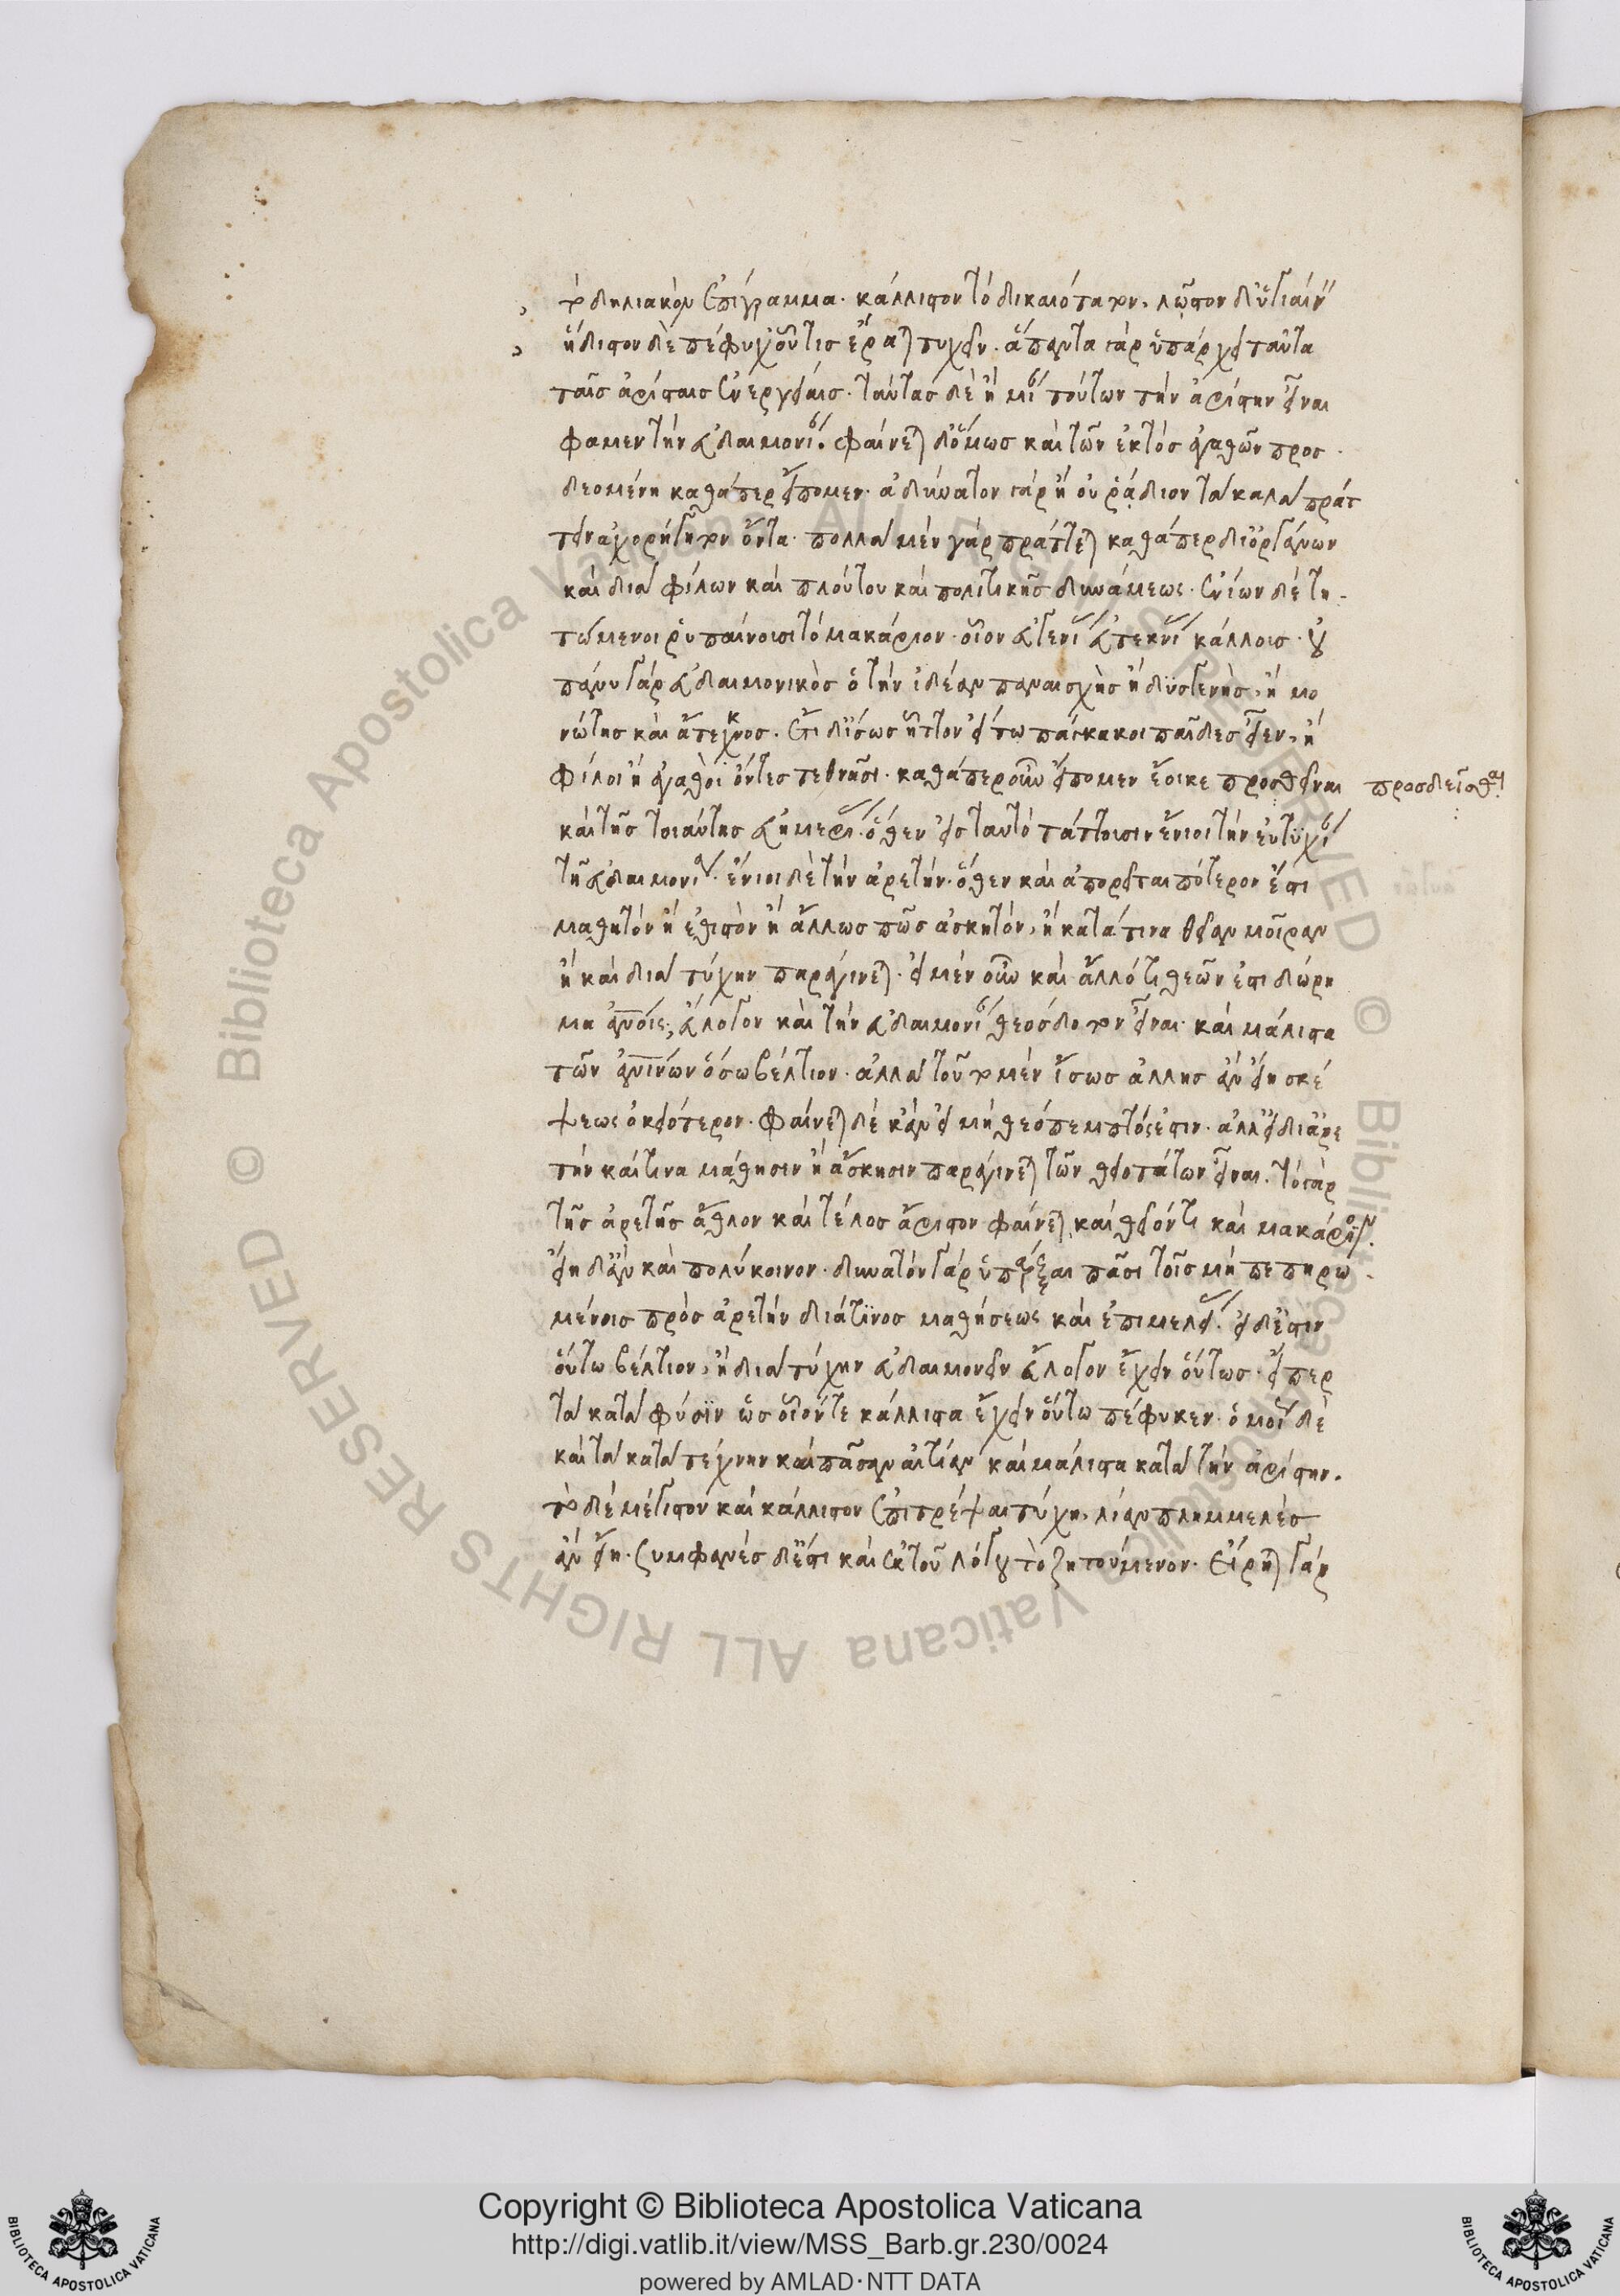 τὸ δηλιακὸν ἐπίγραμμα. κάλλιστον τὸ δικαιότατον. λῷστον δ' ὑγιαίν
ἥδιστον δὲ πέφυχ' οὗ τις ἐρᾷ τυχεῖν. ἅπαντα γὰρ ὑπάρχει ταῦτα
ταῖς ἀρίσταις ἐνεργείαις. ταύτας δὲ ἢ μίαν τούτων τὴν ἀρίστην εἶναι
φαμεν τὴν εὐδαιμονίαν. φαίνεται δ' ὅμως καὶ τῶν ἐκτὸς ἀγαθῶν προσ
δεομένη καθάπερ εἴπομεν. ἀδύνατον γὰρ ἢ οὐ ῥᾴδιον τὰ καλὰ πράτ
τειν ἀχορήγητον ὄντα. πολλὰ μὲν γὰρ πράττεται καθάπερ δι' ὀργάνων
καὶ διὰ φίλων καὶ πλούτου καὶ πολιτικῆς δυνάμεως. ἐνίων δὲ τη
τώμενοι ῥυπαίνουσι τὸ μακάριον. οἷον εὐγενείας εὐτεκνίας κάλλους. οὐ
πάνυ γὰρ εὐδαιμονικὸς ὁ τὴν ἰδέαν παναισχὴς ἢ δυσγενὴς, ἢ μο
νώτης καὶ ἄτεκνος. ἔτι δ' ἴσως ἧττον εἴ τω πάγκακοι παῖδες εἶεν, ἢ
φίλοι ἢ ἀγαθοὶ ὄντες τεθνᾶσι. καθάπερ οὖν εἴπομεν ἔοικε προσθεῖναι
προσδεῖσθαι
καὶ τῆς τοιαύτης εὐημερίας. ὅθεν εἰς ταυτὸ τάττουσιν ἔνιοι τὴν εὐτυχίαν
τῇ εὐδαιμονίᾳ. ἔνιοι δὲ τὴν ἀρετήν. ὅθεν καὶ ἀπορεῖται πότερον ἐστι
μαθητὸν ἢ ἐθιστὸν ἢ ἄλλως πῶς ἀσκητόν, ἢ κατά τινα θείαν μοῖραν
ἢ καὶ διὰ τύχην παραγίνεται. εἰ μὲν οὖν καὶ ἄλλό τι θεῶν ἐστι δώρη
μα ἀνθρώποις, εὔλογον καὶ τὴν εὐδαιμονίαν θεόσδοτον εἶναι. καὶ μάλιστα
τῶν ἀνθρωπίνων ὅσω βέλτιον. ἀλλὰ τοῦτο μὲν ἴσως ἄλλης ἂν εἴη σκέ
ψεως οἰκειότερον. φαίνεται δὲ κἂν εἰ μὴ θεόπεμπτός ἐστιν. ἀλλ' εἰ δι' ἀρε
τὴν καί τινα μάθησιν ἢ ἄσκησιν παραγίνεται τῶν θειοτάτων εἶναι. τὸ γὰρ
τῆς ἀρετῆς ἆθλον καὶ τέλος ἄριστον φαίνεται, καὶ θεῖόν τι καὶ μακάριον.
εἴη δ' ἂν καὶ πολύκοινον. δυνατὸν γὰρ ὑπάρξαι πᾶσι τοῖς μὴ πεπηρω
μένοις πρὸς ἀρετὴν διά τινος μαθήσεως καὶ ἐπιμελείας. εἰ δ' ἐστιν
οὕτω βέλτιον, ἢ διὰ τύχην εὐδαιμονεῖν εὔλογον ἔχειν οὕτως. εἴπερ
τὰ κατὰ φύσιν ὡς οἷόν τε κάλλιστα ἔχειν οὕτω πέφυκεν. ὁμοίως δὲ
καὶ τὰ κατὰ τέχνην καὶ πᾶσαν αἰτίαν καὶ μάλιστα κατὰ τὴν ἀρίστην.
τὸ δὲ μέγιστον καὶ κάλλιστον ἐπιτρέψαι τύχη, λίαν πλημμελὲς
ἂν εἴη. συμφανὲς δ' ἐστι καὶ ἐκ τοῦ λόγου τὸ ζητούμενον. εἴρηται γὰρ
Copyright © Biblioteca Apostolica Vaticana
http://digi.vatlib.it/view/MSS_Barb.gr.230/0024
powered by AMLAD·NTT DATA